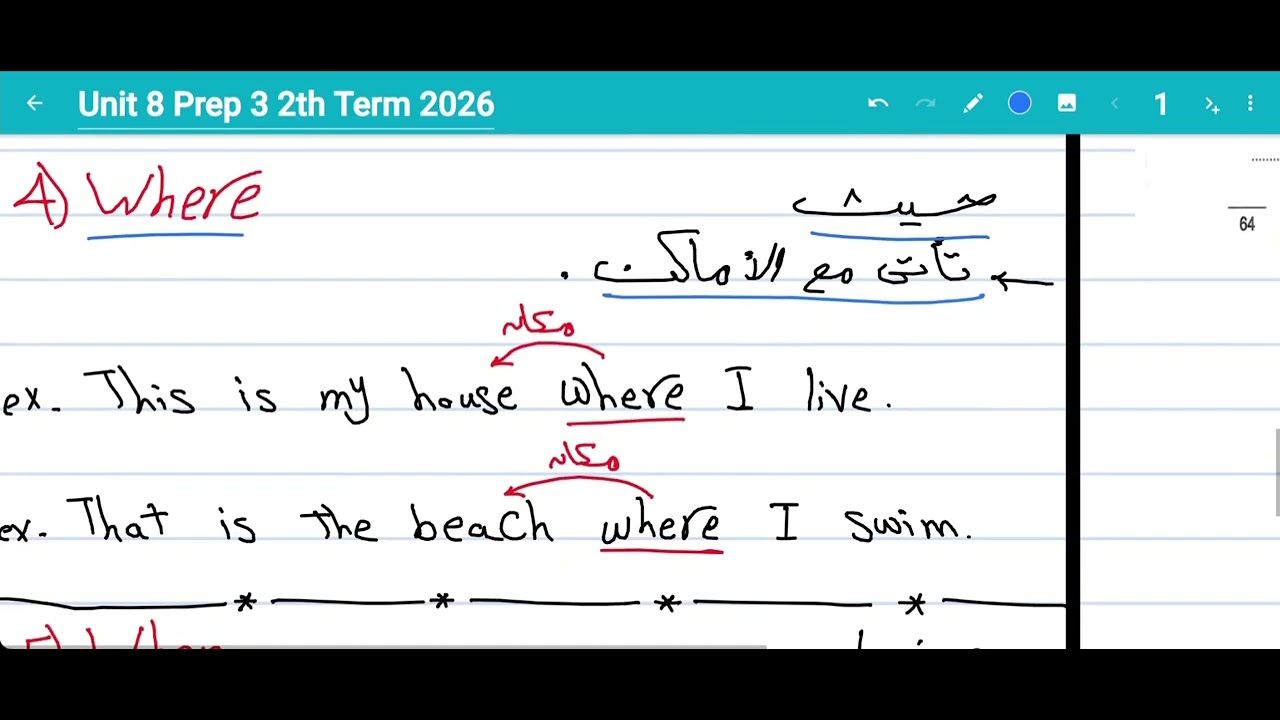 Unit 8 Prep 3 2th Term 2026
1
4) Where
حيث
تأتى مع الأماكن .
64
مكان
ex. This is my house where I live.
مكان
ex. That is the beach where I swim.
5) When